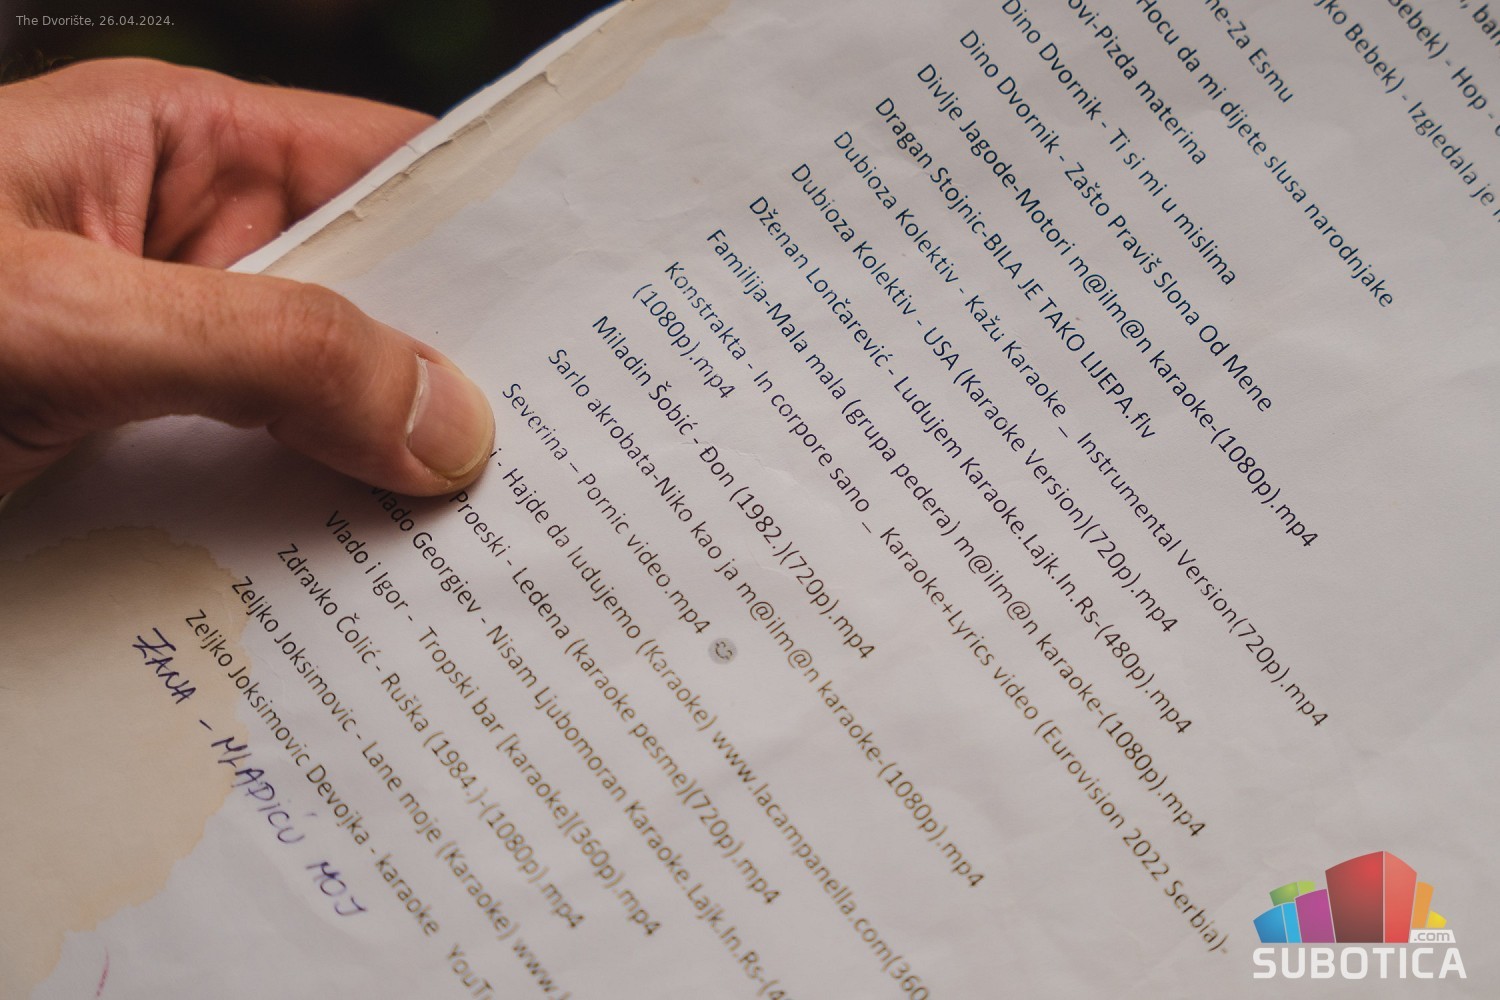 The Dvorište, 26.04.2024.
, bah
Bebek) - Hop -
jko Bebek) - Izgledala je
ne-Za Esmu
Hocu da mi dijete slusa narodnjake
ovi-Pizda materina
Dino Dvornik - Ti si mi u mislima
Dino Dvornik - Zašto Praviš Slona Od Mene
Divlje Jagode-Motori m@ilm@n karaoke-(1080p).mp4
Dragan Stojnic-BILA JE TAKO LIJEPA.flv
Dubioza Kolektiv - Kažu Karaoke _ Instrumental Version(720p).mp4
Dubioza Kolektiv - USA (Karaoke Version)(720p).mp4
Dženan Lončarević - Ludujem Karaoke.Lajk.In.Rs-(480p).mp4
Familija-Mala mala (grupa pedera) m@ilm@n karaoke-(1080p).mp4
Konstrakta - In corpore sano _ Karaoke+Lyrics video (Eurovision 2022 Serbia)-
(1080p).mp4
Miladin Šobić - Đon (1982.)(720p).mp4
Sarlo akrobata-Niko kao ja m@ilm@n karaoke-(1080p).mp4
Severina – Pornic video.mp4
i - Hajde da ludujemo (Karaoke) www.lacampanella.com(360
Proeski - Ledena (karaoke pesme)(720p).mp4
Vlado Georgiev - Nisam Ljubomoran Karaoke.Lajk.In.Rs-(4
Vlado i Igor - Tropski bar [karaoke](360p).mp4
Zdravko Čolić - Ruška (1984.)-(1080p).mp4
Zeljko Joksimovic - Lane moje (Karaoke) www.
Zeljko Joksimovic Devojka - karaoke YouT
ZANA - MLADIĆU MOJ
.com
SUBOTICA